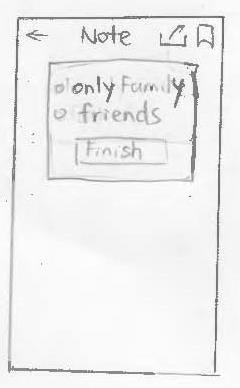 Note
only Family
friends
Finish